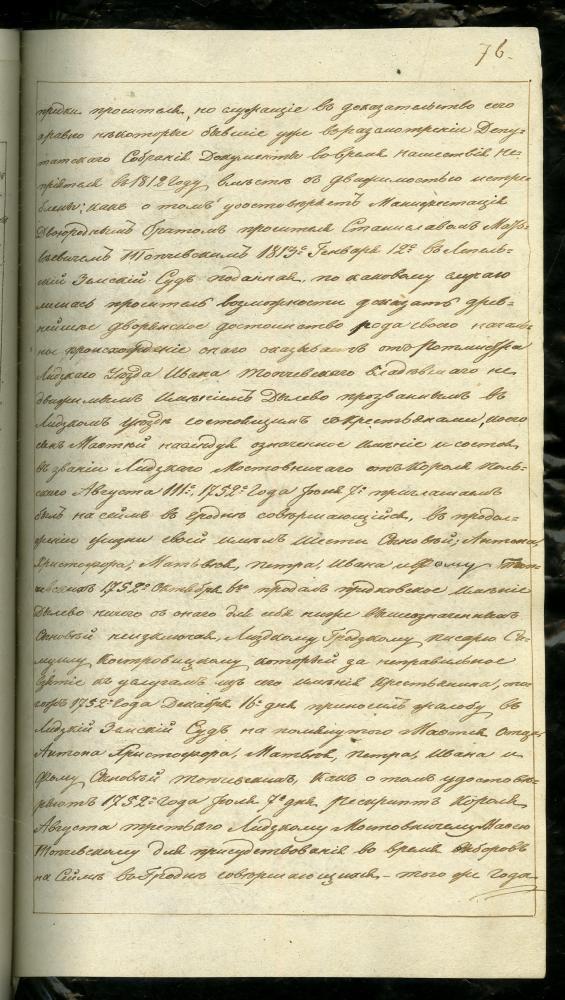 76.
предки просителя, но служащіе въ доказательство сего
а равно некоторые бывшіе уже въ разсмотреніи Депу-
татскаго Собранія Документы во время нашествія не-
пріятеля въ 1812 году вместе съ движимостью истреб-
лены; какъ о томъ удостоверяетъ Манифестація
Двоюроднымъ братомъ просителя Станиславомъ Матѣ-
евичемъ Топчевскимъ 1813го Генваря 12го въ Лепель-
скій Земскій Судъ поданная, по каковому случаю
лишась проситель возможности доказать древ-
нейшное дворянское достоинство рода своего началь-
ное происхожденіе онаго оказываетъ отъ Ротмистра
Лидскаго Уезда Ивана Топчевскаго владевшаго не-
движимымъ именіемъ Дылево прозваннымъ въ
Лидскомъ уезде состоящимъ съ крестьянами, коего
сынъ Матвей наследуя означенное именіе и состоя
въ званіи Лидскаго Мостовничаго отъ Короля Поль-
скаго Августа III го, 1752го Года Іюля 7го приглашаемъ
былъ на сеймъ въ Гродне совершающійся, въ продол-
женіи жизни своей имелъ шести Сыновей; Антона,
Христофора, Матвея, Петра, Ивана и Фому
1752го Октября продалъ предковское именіе
Дылево ничего съ онаго для себя ниже вышеозначенныхъ
Сыновей неизключая, Лидскому Гродскому писарю Са-
муилу Костровицкому который за неправильное
взятіе къ услугамъ изъ сего именія крестьянина, то-
гожъ 1752го Года Декабря 16го дня приносилъ жалобу въ
Лидскій Земскій Судъ на помянутого Матвея отца,
Антона Христофора, Матвея, Петра, Ивана и
Фому Сыновей Топчевскихъ, какъ о томъ удостове-
ряютъ 1752го Года Іюля 7го дня Рескриптъ Короля
Августа третьяго Лидскому Мостовничему Матвею
Топчевскому для присудствованія во время выборовъ
на Сейме въ Гродне совершающихся – того же года